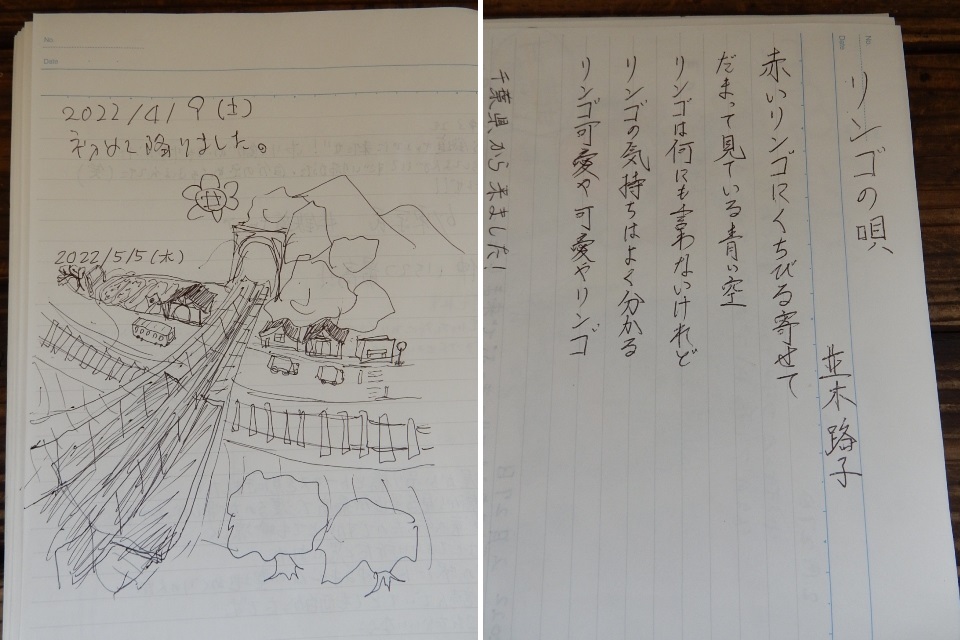 No.
Date
2022/4/9(土)
初めて降りました。
2022/5/5(木)
リンゴの唄
並木路子
赤いリンゴにくちびる寄せて
だまって見ている青い空
リンゴは何にも云わないけれど
リンゴの気持ちはよく分かる
リンゴ可愛や可愛やリンゴ
千葉県から来ました!